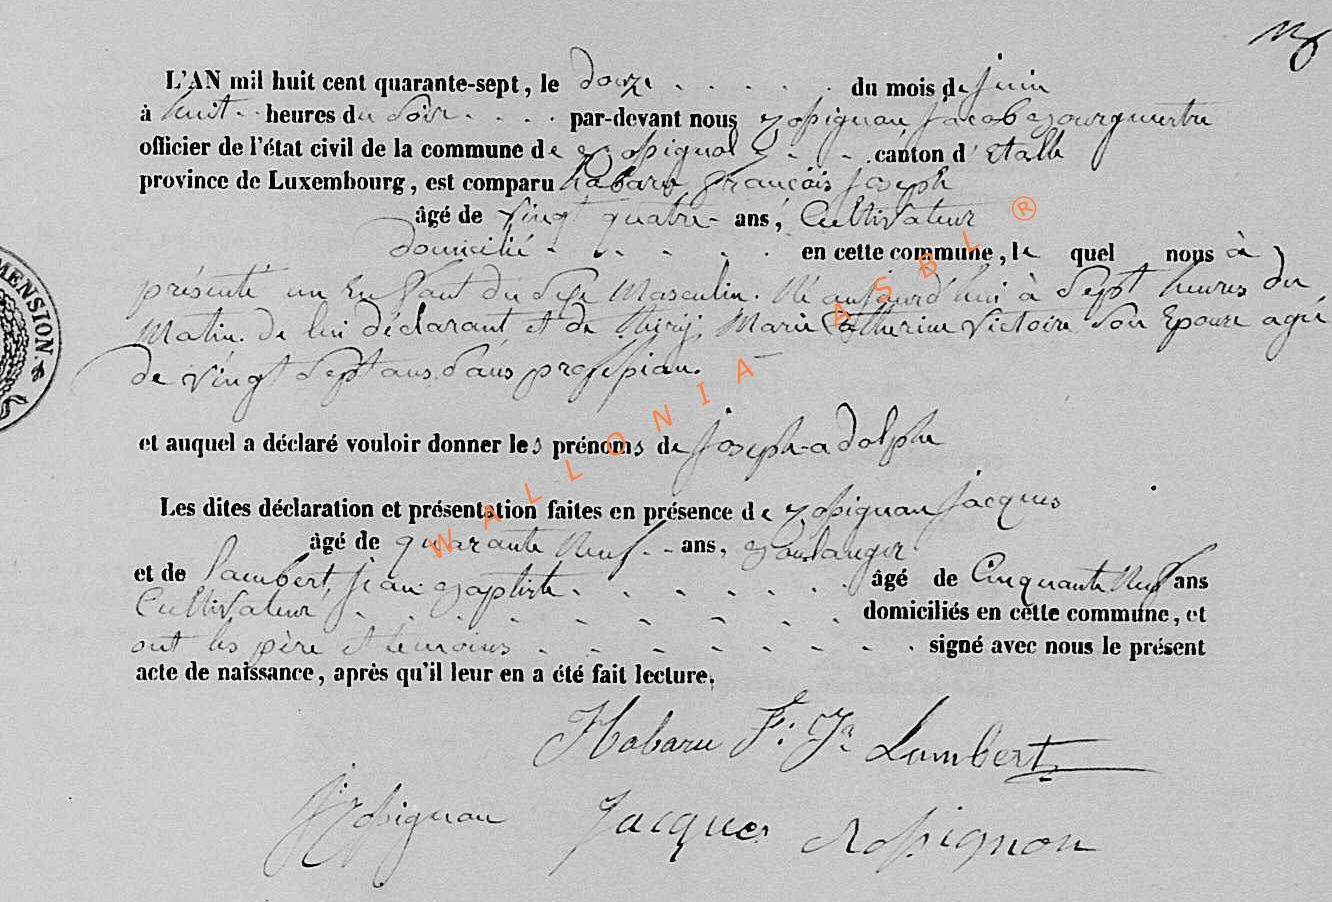 L'AN mil huit cent quarante-sept, le douze . . . . . du mois de juin
à huit . . heures du Soir . . . . par-devant nous Rossignon Jacob Bourgmestre
officier de l'état civil de la commune de Rossignol . . . canton d'Etalle
province de Luxembourg, est comparu habaru, françois joseph
âgé de vingt quatre - ans, Cultivateur
domicilié . . . . . en cette commune, le quel nous à
présenté un Enfant du Sexe Masculin. Né aujourd'hui à Sept heures du
Matin. de lui déclarant et de thiry, Marie Catherine Victoire Son Epouse agée
de vingt Sept ans. Sans profession.
et auquel a déclaré vouloir donner les prénoms de joseph-adolphe
Les dites déclaration et présentation faites en présence de Rossignon jacques
âgé de quarante Neuf - - ans, Boulanger
et de lambert, jean-Baptiste . . . . . . âgé de Cinquante Neuf ans
Cultivateur . . . . . . . domiciliés en cette commune, et
ont les père et temoins . . . . . . . signé avec nous le présent
acte de naissance, après qu'il leur en a été fait lecture.
Habaru F. Jh Lambert
J Rossignon Jacques Rossignon
MENSION.
WALLONIA ASBL ®